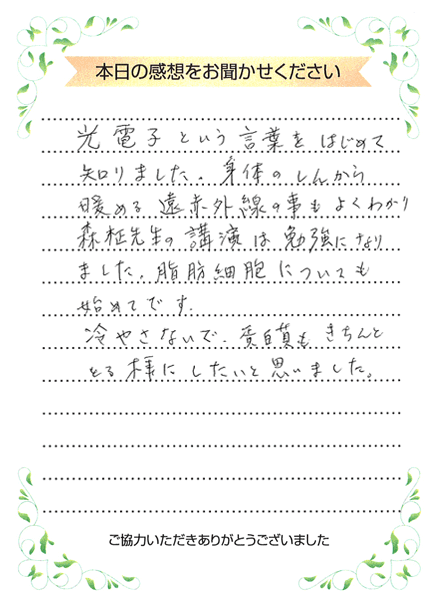 本日の感想をお聞かせください
光電子という言葉をはじめて
知りました。身体のしんから
暖める遠赤外線の事もよくわかり
森柾先生の講演は勉強になり
ました。脂肪細胞についても
始めてです。
冷やさないで、蛋白質もきちんと
とる様にしたいと思いました。
ご協力いただきありがとうございました